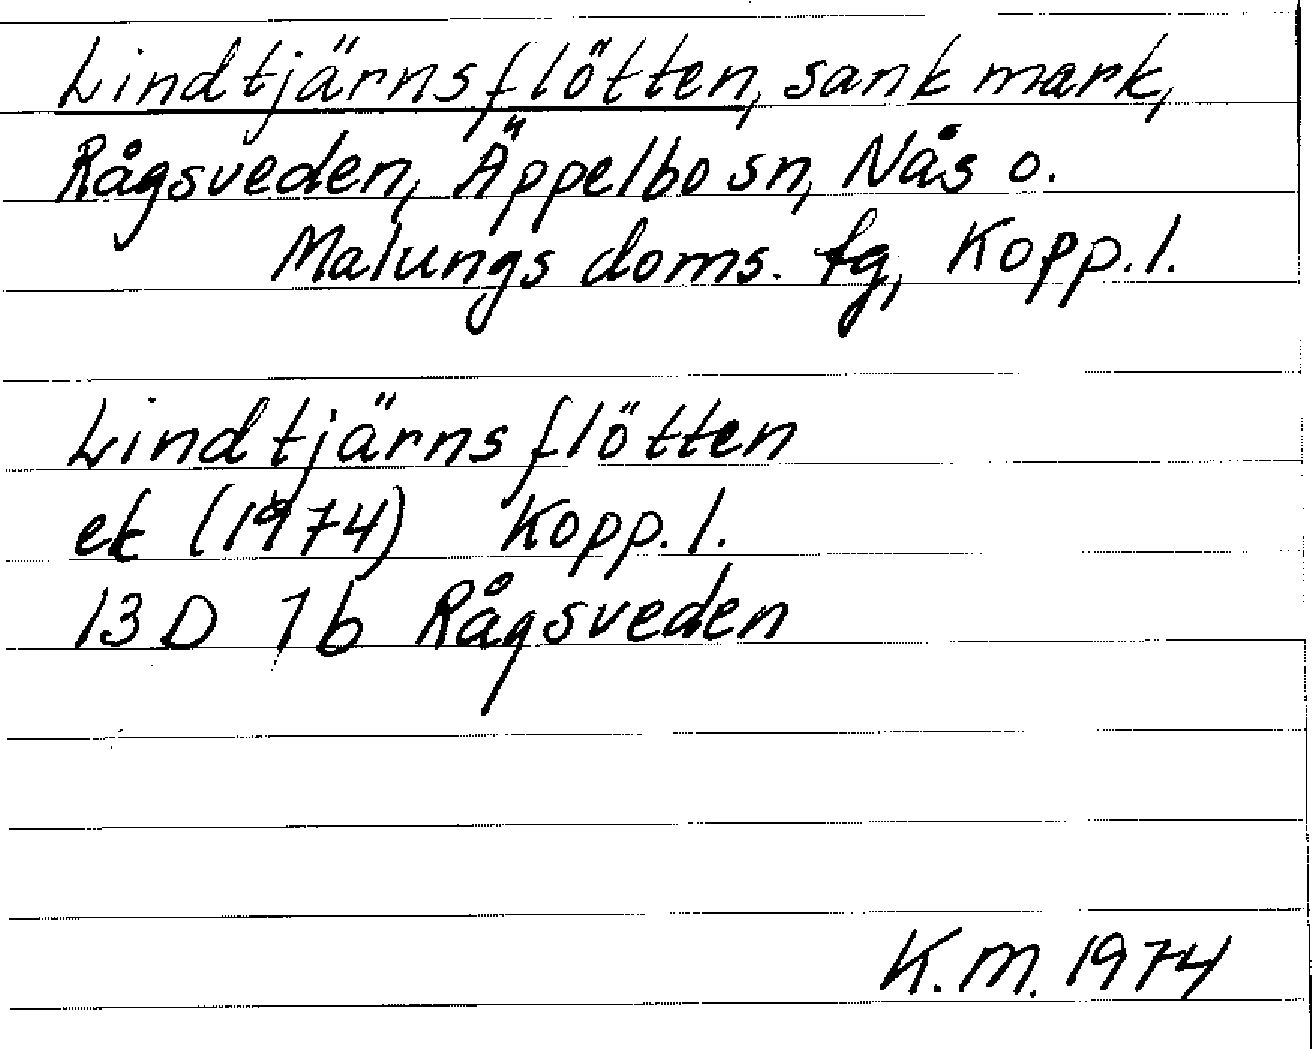 Lindtjärnsflötten, sank mark,
Rågsveden, Äppelbo sn, Nås o.
Malungs doms. tg, Kopp. l.
Lindtjärnsflötten
ek (1974) Kopp. l.
13 D 7b Rågsveden
K.M. 1974